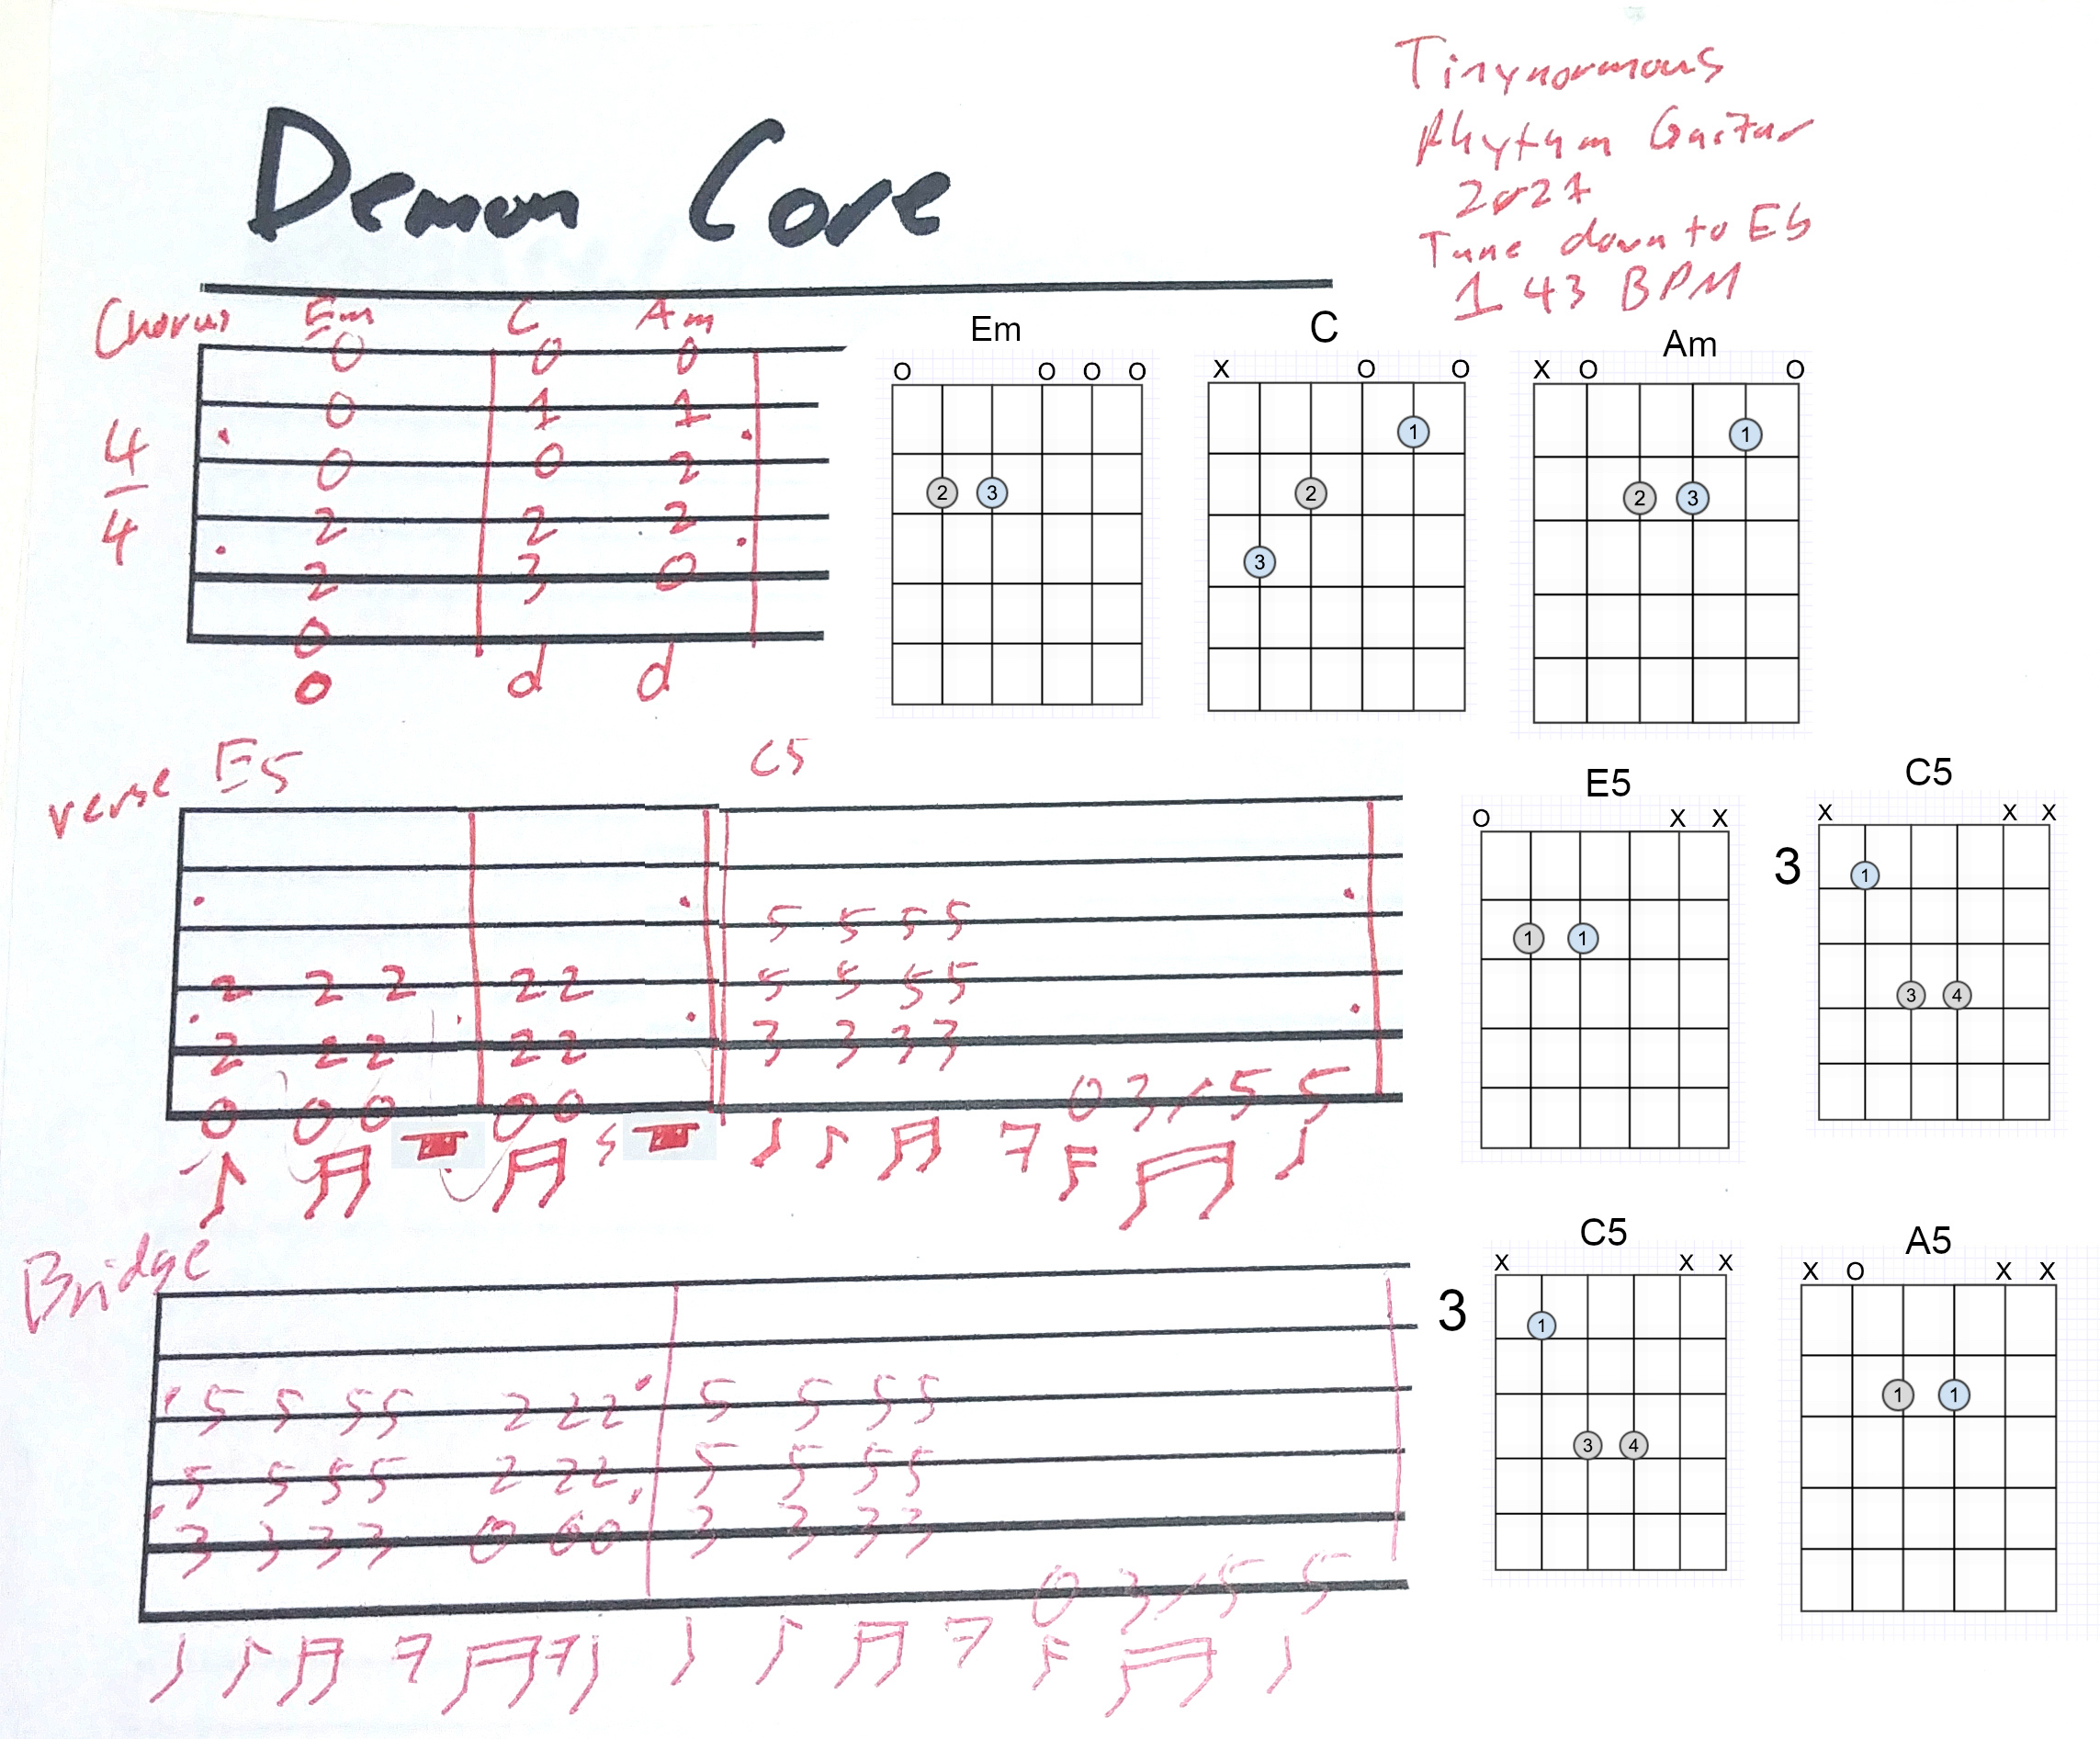 Demon Core
Tinynormous
Rhythm Guitar
2021
Tune down to Eb
143 BPM
Chorus Em C Am
0 0 0
0 1 1
0 0 2
2 2 2
2 3 0
0
4
4
Em
O O O O
2 3
C
X O O
1
2
3
Am
X O O
1
2 3
verse E5 C5
5 5 5 5
2 2 2 2 2 5 5 5 5
2 2 2 2 2 3 3 3 3
0 0 0 0 0 0 3 / 5 5
E5
O X X
1 1
C5
X X X
3
1
3 4
Bridge
5 5 5 5 2 2 2 5 5 5 5
5 5 5 5 2 2 2 5 5 5 5
3 3 3 3 0 0 0 3 3 3 3
0 3 / 5 5
C5
X X X
3
1
3 4
A5
X O X X
1 1